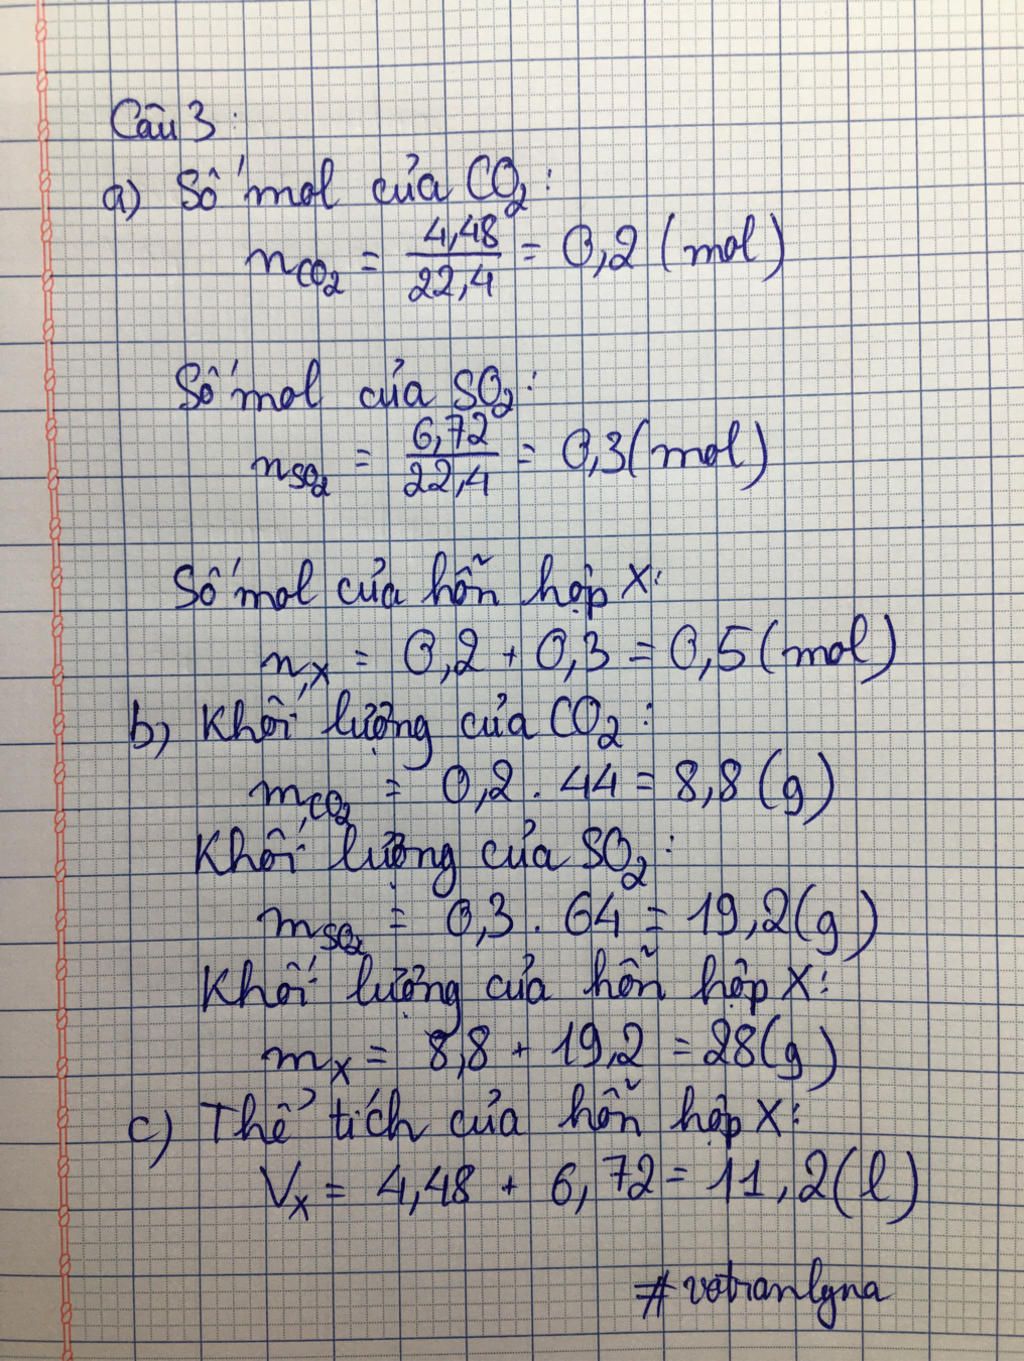 Câu 3:
a) Số mol của CO₂:
n_CO₂ = 4,48/22,4 = 0,2 (mol)
Số mol của SO₂:
n_SO₂ = 6,72/22,4 = 0,3 (mol)
Số mol của hỗn hợp X:
n_X = 0,2 + 0,3 = 0,5 (mol)
b) Khối lượng của CO₂:
m_CO₂ = 0,2 . 44 = 8,8 (g)
Khối lượng của SO₂:
m_SO₂ = 0,3 . 64 = 19,2 (g)
Khối lượng của hỗn hợp X:
m_X = 8,8 + 19,2 = 28 (g)
c) Thể tích của hỗn hợp X:
V_X = 4,48 + 6,72 = 11,2 (l)
#votranlyna